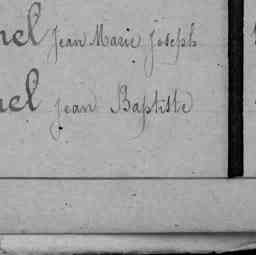 nel Jean Marie Joseph
nel Jean Baptiste